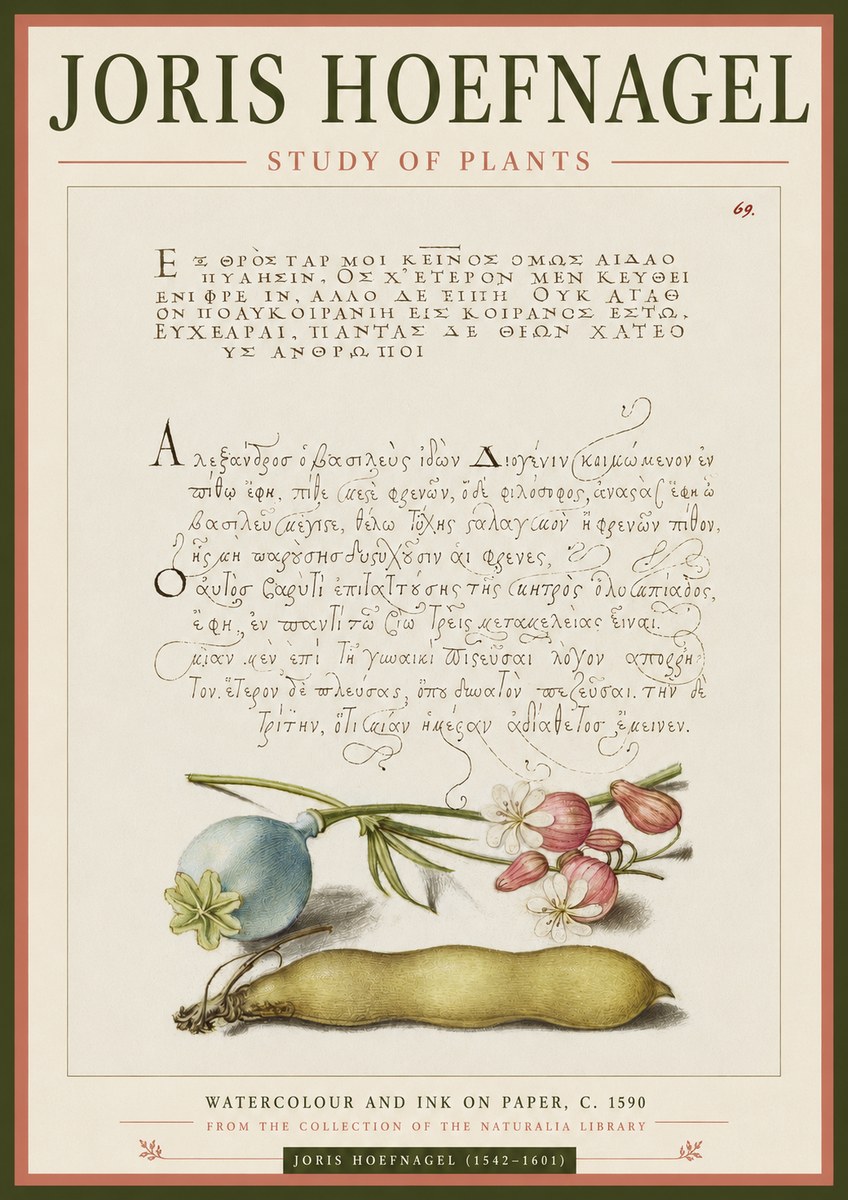 JORIS HOEFNAGEL
STUDY OF PLANTS
69.
Ε ΘΡΟΣ ΓΑΡ ΜΟΙ ΚΕΙΝΟΣ ΟΜΩΣ ΑΙΔΑΟ
ΠΥΛΗΣΙΝ, ΟΣ Χ' ΕΤΕΡΟΝ ΜΕΝ ΚΕΥΘΕΙ
ΕΝΙ ΦΡΕ ΙΝ, ΑΛΛΟ ΔΕ ΕΙΠΗ ΟΥΚ ΑΓΑΘ
ΟΝ ΠΟΛΥΚΟΙΡΑΝΙΗ ΕΙΣ ΚΟΙΡΑΝΟΣ ΕΣΤΩ,
ΠΑΝΤΑΣ ΔΕ ΘΕΩΝ ΧΑΤΕΟ
ΥΣ ΑΝΘΡΩΠΟΙ
Αλεξανδρος ὁ βασιλεὺς ἰδὼν Διογένιν κοιμώμενον ἐν
πίθῳ ἔφη, πίθε μεστὲ φρενῶν, ὁ δὲ φιλόσοφος, ἔφη ὦ
βασιλεῦ μέγιστε, θέλω τύχης σταλαγμὸν ἢ φρενῶν πίθον,
ἧς μὴ παρούσης δυστυχοῦσιν αἱ φρενες,
Ο αὐτὸς βαρὺ τι ἐπιταττούσης τῆς μητρὸς ὀλυμπίαδος,
ἔφη, ἐν παντὶ τῷ βίῳ τρεῖς μεταμελείας εἶναι.
μίαν μὲν ἐπὶ τῇ γυναικὶ πιστεῦσαι λόγον
τον. ἕτερον δὲ πλεύσας, ὅπου δυνατὸν πεζεῦσαι. τὴν δὲ
τρίτην, ὅτι μίαν ἡμέραν ἀδιάθετος ἔμεινεν.
WATERCOLOUR AND INK ON PAPER, C. 1590
FROM THE COLLECTION OF THE NATURALIA LIBRARY
JORIS HOEFNAGEL (1542–1601)